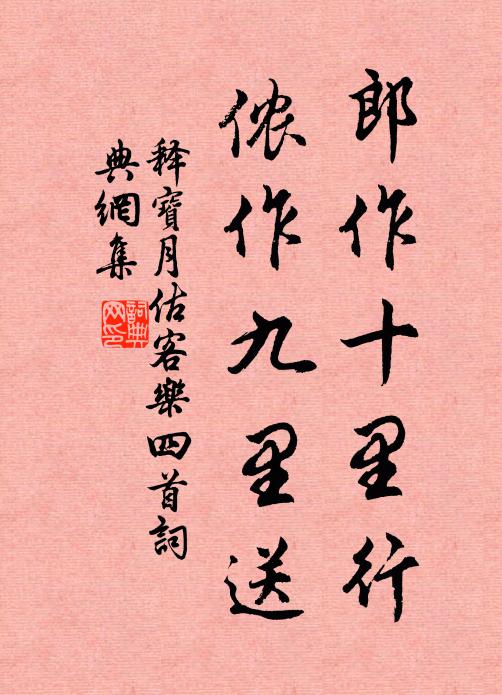 郎作十里行
侬作九里送
释寶月估客樂四首詞
典網集
詞典
网印